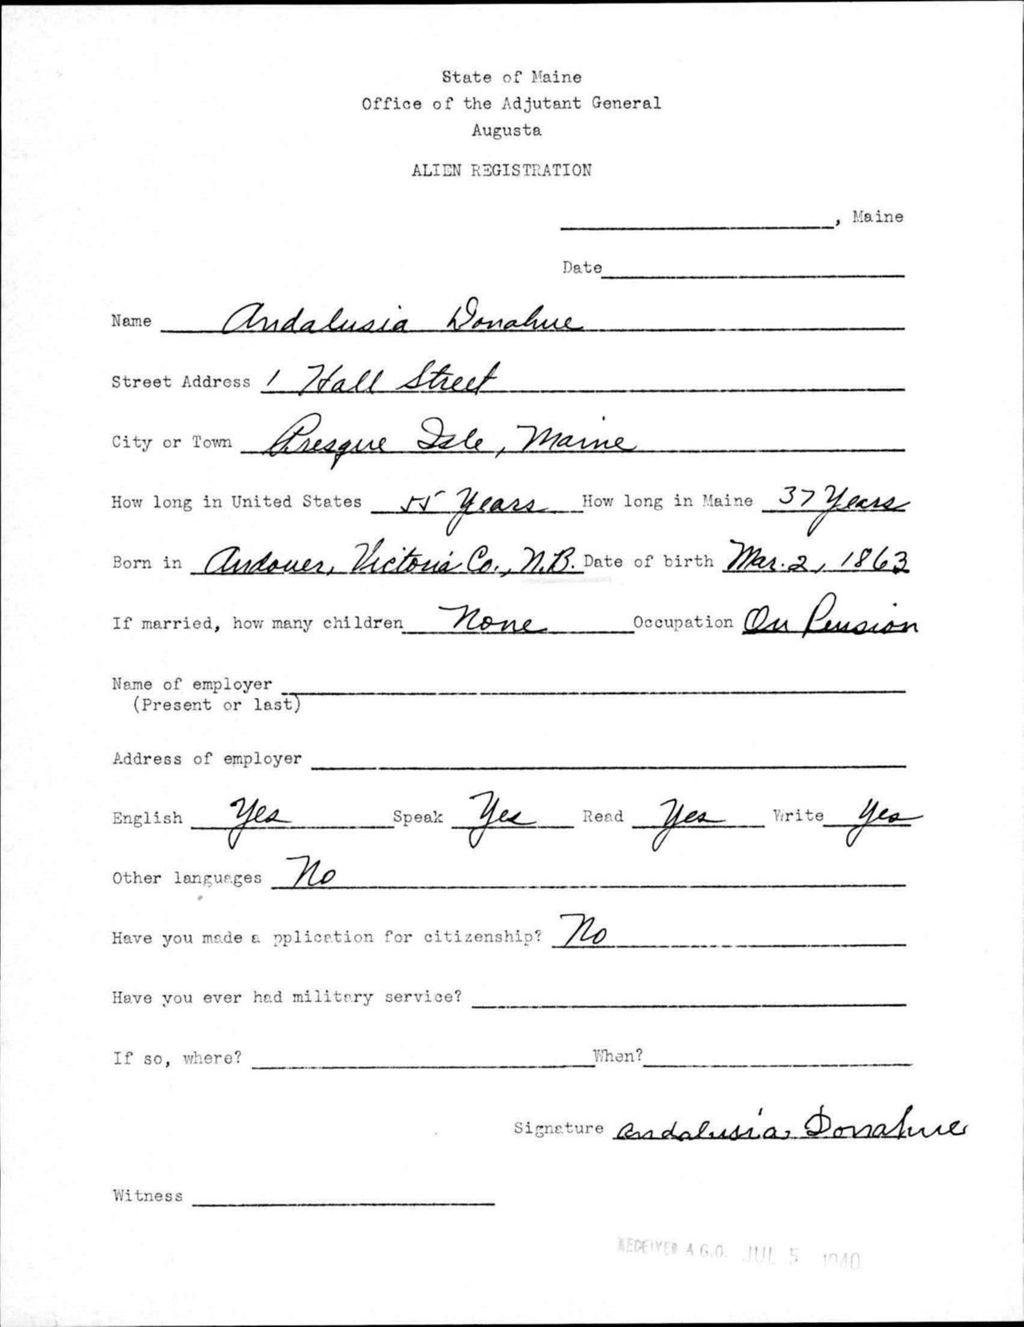 State of Maine
Office of the Adjutant General
Augusta
ALIEN REGISTRATION
, Maine
Date
Name Andalusia Donahue
Street Address 1 Hall Street
City or Town Presque Isle, Maine
How long in United States 55 Years How long in Maine 37 Years
Born in Andover, Victoria Co., N.B. Date of birth Mar. 2, 1863
If married, how many children None Occupation On Pension
Name of employer
(Present or last)
Address of employer
English Yes Speak Yes Read Yes Write Yes
Other languages No
Have you made a pplication for citizenship? No
Have you ever had military service?
If so, where? When?
Signature Andalusia Donahue
Witness
RECEIVED A.G.O. JUL 5 1940